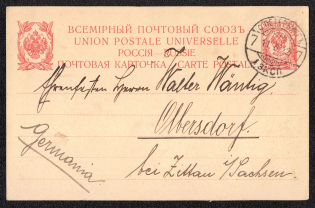 ВСЕМІРНЫЙ ПОЧТОВЫЙ СОЮЗЪ
UNION POSTALE UNIVERSELLE
РОССІЯ RUSSIE
ПОЧТОВАЯ КАРТОЧКА CARTE POSTALE
Herrn Walter Wäntig
Olbersdorf.
bei Zittau / Sachsen.
Germania